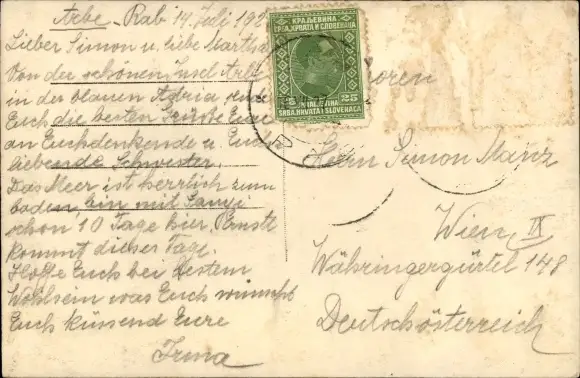 Arbe - Rab 14. Juli 192
Lieber Simon u. liebe Martha
Von der schönen Insel Arbe
in der blauen Adria sende
Euch die besten Grüsse Eure
an Euch denkende u. Euch
liebende Schwester.
Das Meer ist herrlich zum
baden, bin mit
schon 10 Tage hier, Ernstl
kommt dieser Tage.
Hoffe Euch bei bestem
Wohlsein was Euch wünscht
Euch küssend Eure
Irma
КРАЉЕВИНА
СРБА, ХРВАТА И СЛОВЕНАЦА
25 25
KRALJEVINA
SRBA, HRVATA I SLOVENACA
Herrn Simon Manz
Wien IX
Währingergürtel 148
Deutschösterreich